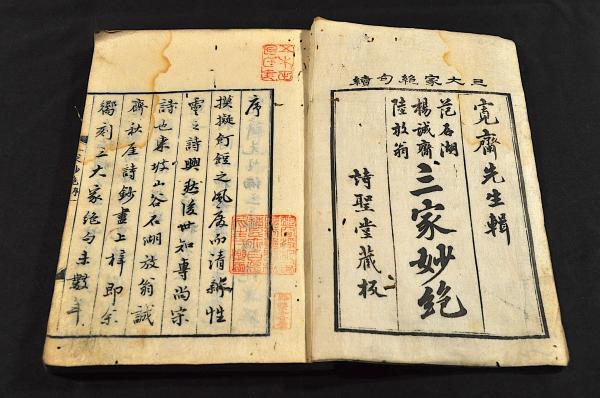 三大家絶句續
寛齋先生輯
范石湖
楊誠齋
陸放翁
三家妙絶
詩聖堂藏板
序
摸擬飣餖之風廢而清新性
靈之詩興然後世知專尚宋
詩也東坡山谷石湖放翁誠
齋秋崖詩鈔盡上梓即余
嚮刻三大家絶句未數年